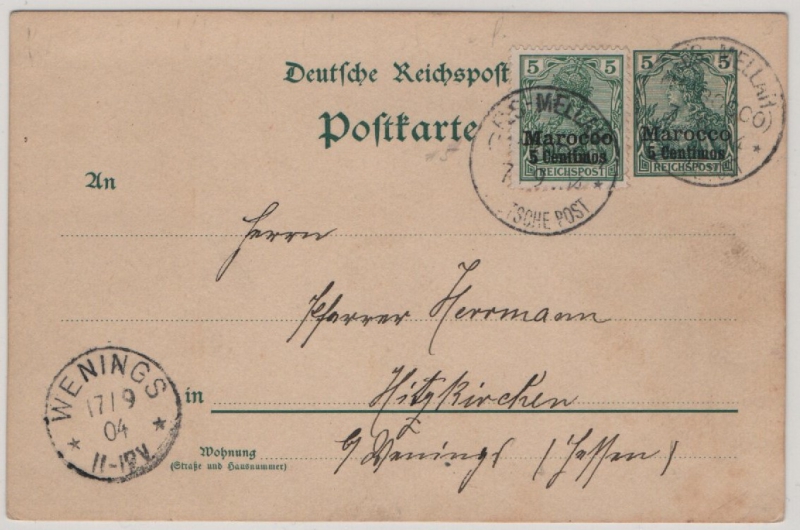 Deutsche Reichspost
Postkarte
5 5
Marocco
5 Centimos
REICHSPOST
5 5
Marocco
5 Centimos
REICHSPOST
FES-MELLAH
7 9
TSCHE POST
MELLAH
An
Herrn
Pfarrer Herrmann
in Hitzkirchen
Wohnung
(Straße und Hausnummer)
Wenings (Hessen)
WENINGS
17/9
04
11-12V